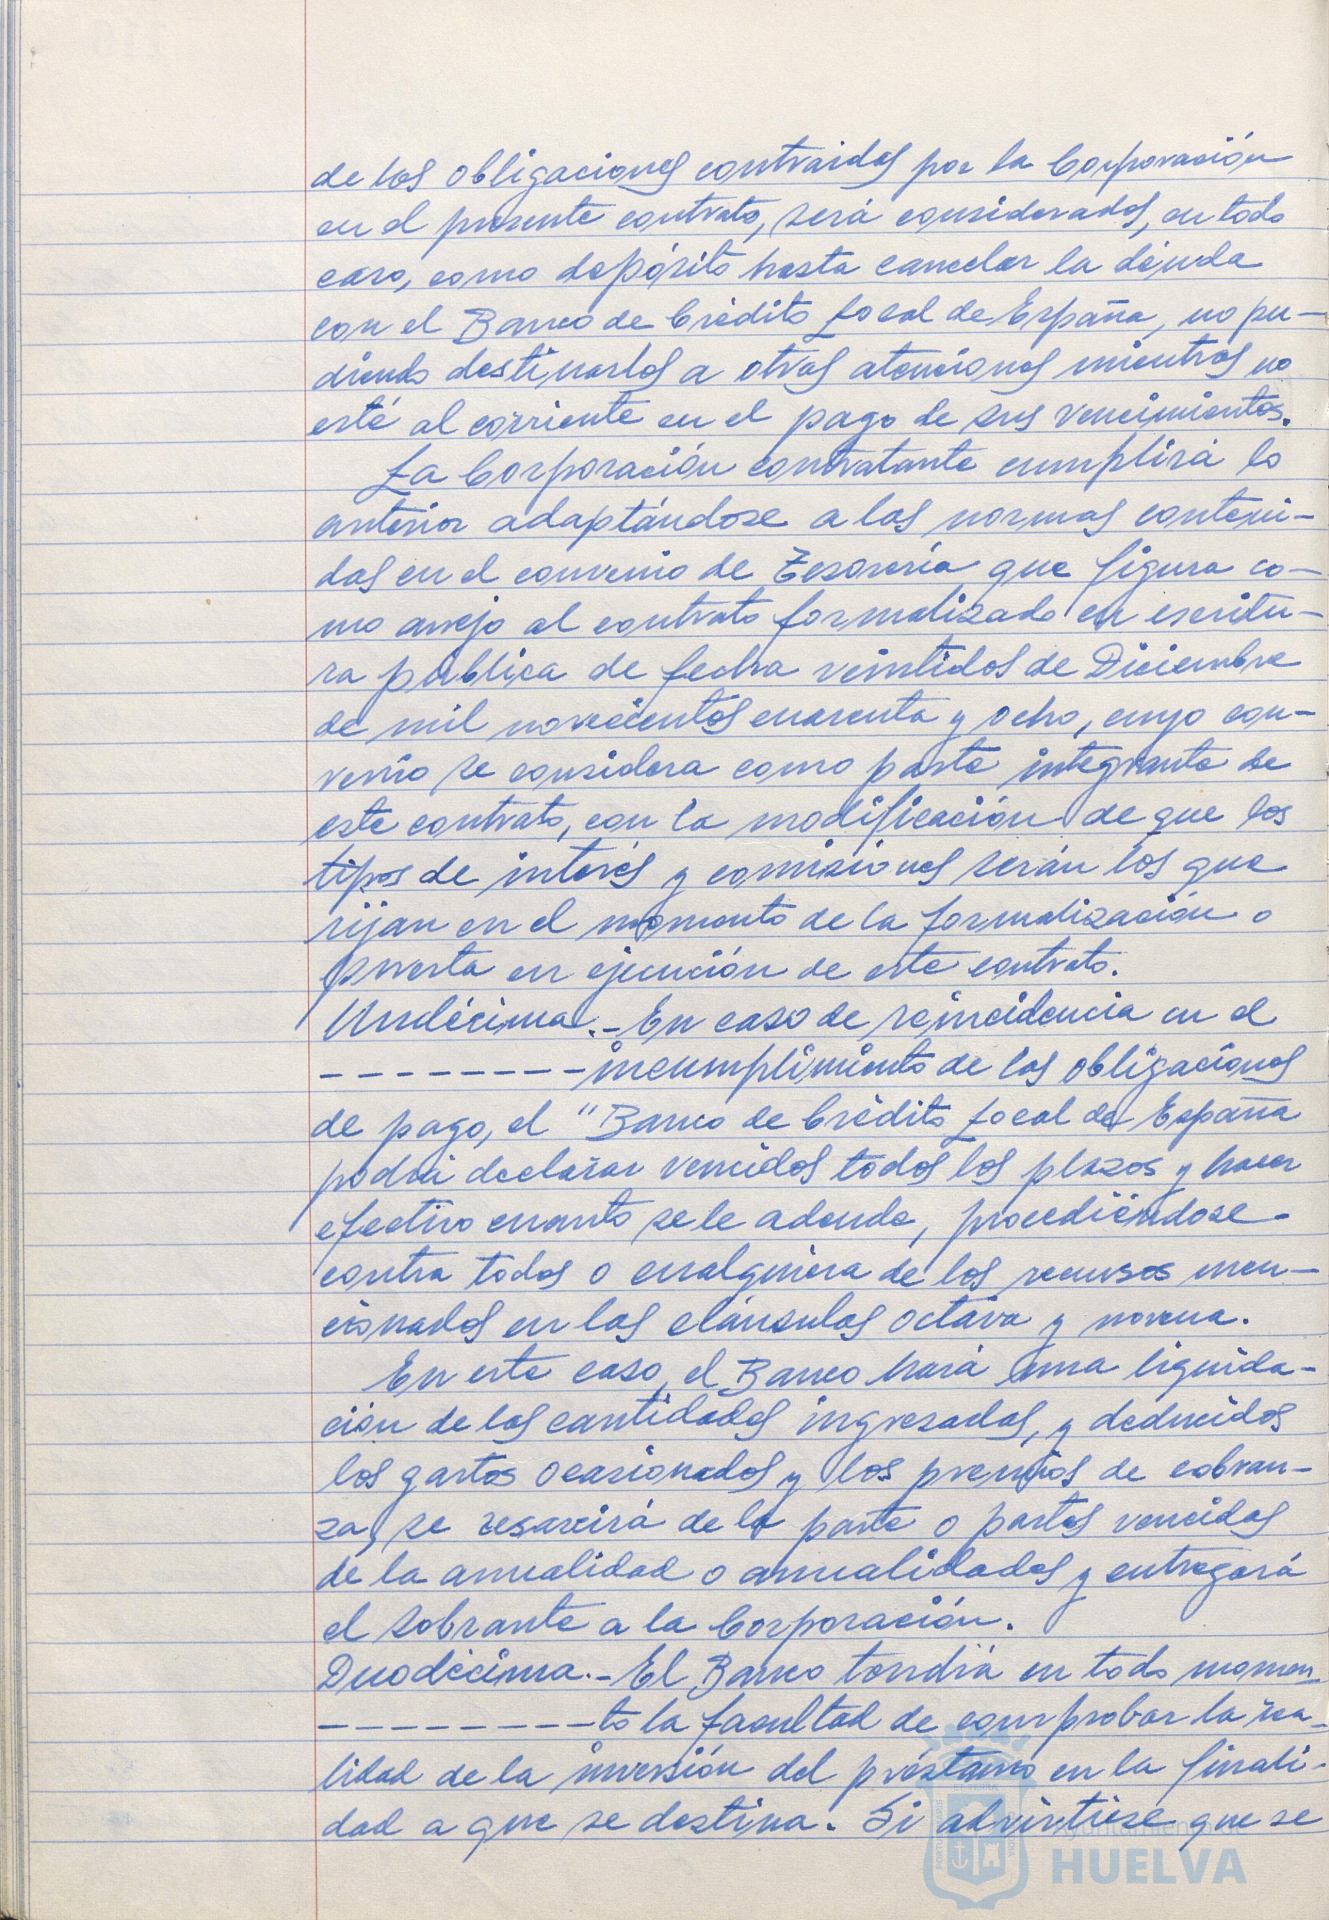 de las obligaciones contraidas por la Corporación
en el presente contrato, será considerados, en todo
caso, como depósito hasta cancelar la deuda
con el Banco de Crédito Local de España, no pu-
diendo destinarlos a otras atenciones mientras no
esté al corriente en el pago de sus vencimientos.
La Corporación contratante cumplirá lo
anterior adaptándose a las normas conteni-
das en el convenio de Tesorería que figura co-
mo anejo al contrato formalizado en escritu-
ra pública de fecha veintidos de Diciembre
de mil novecientos cuarenta y ocho, cuyo con-
venio se considera como parte integrante de
este contrato, con la modificación de que los
tipos de interés y comisiones serán los que
rijan en el momento de la formalización o
puesta en ejecución de este contrato.
Undécima.- En caso de reincidencia en el
--------incumplimiento de las obligaciones
de pago, el "Banco de Crédito Local de España
podrá declarar vencidos todos los plazos y hacer
efectivo cuanto se le adeude, procediéndose
contra todos o cualquiera de los recursos men-
cionados en las cláusulas octava y novena.
En este caso, el Banco hará una liquida-
ción de las cantidades ingresadas, y deducidos
los gastos ocasionados y los premios de cobran-
za, se resarcirá de la parte o partes vencidas
de la anualidad o anualidades y entregará
el sobrante a la Corporación.
Duodécima.- El Banco tendrá en todo momen-
--------to la facultad de comprobar la rea-
lidad de la inversión del préstamo en la finali-
dad a que se destina. Si advirtiese que se
Ayuntamiento de
HUELVA